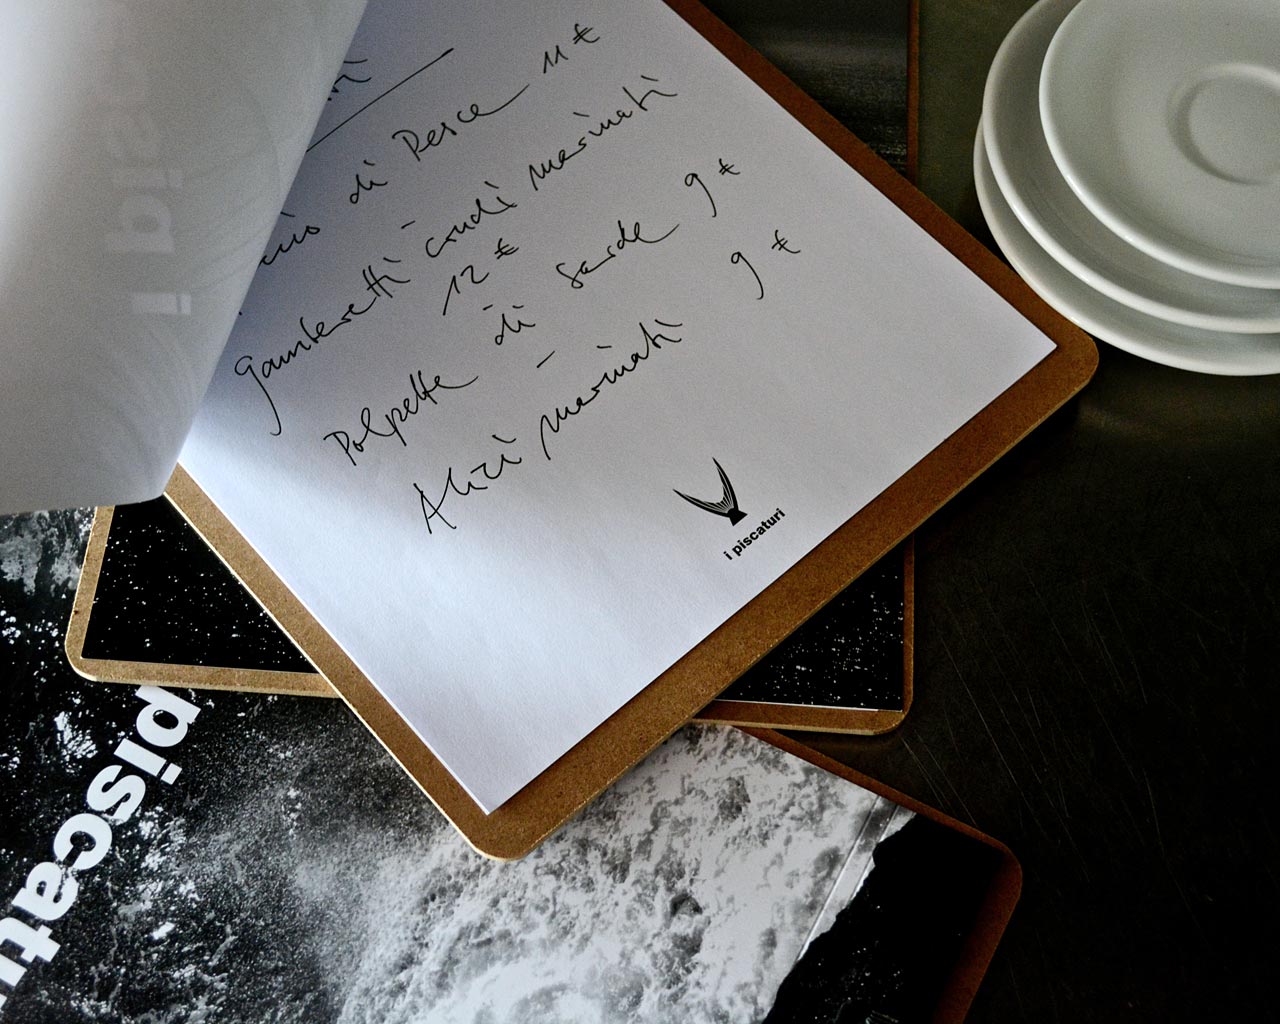 di Pesce 11 €
gamberetti crudi marinati
12 €
Polpette di sarde 9 €
Alici marinati 9 €
i piscaturi
piscatu